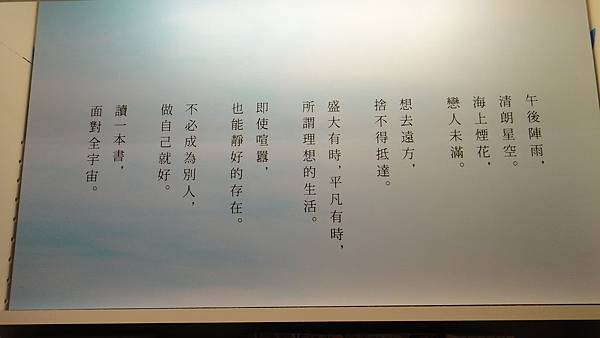 午後陣雨，
清朗星空。
海上煙花，
戀人未滿。
想去遠方，
捨不得抵達。
盛大有時，平凡有時，
所謂理想的生活。
即使喧囂，
也能靜好的存在。
不必成為別人，
做自己就好。
讀一本書，
面對全宇宙。